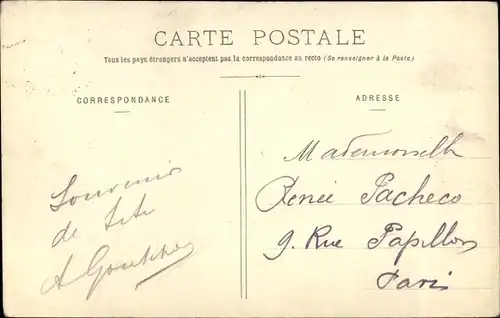 CARTE POSTALE
Tous les pays étrangers n'acceptent pas la correspondance au recto (Se renseigner à la Poste)
CORRESPONDANCE
Souvenir
de
A
ADRESSE
Mademoiselle
Renée Pacheco
9. Rue Papillon
Paris